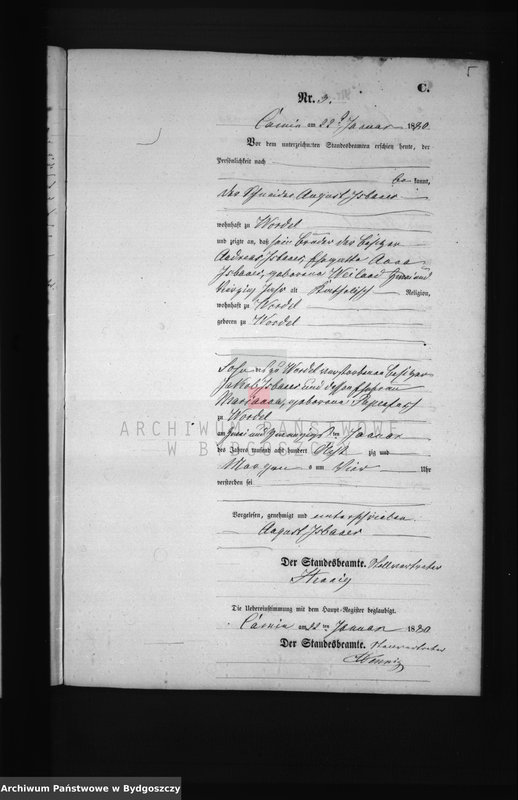 5
C.
Nr. 3.
Camin am 22 ten Januar 1880.
Vor dem unterzeichneten Standesbeamten erschien heute, der
Persönlichkeit nach
be kannt,
der Schneider August
wohnhaft zu Wordel
und zeigte an, daß sein Bruder der Besitzer
Andreas Ehegatte Anna
geborene Weiland und
vierzig Jahr alt Katholisch Religion,
wohnhaft zu Wordel
geboren zu Wordel
Sohn des zu Wordel verstorbenen Besitzer
Jakob und dessen Ehefrau
Marianna, geborene
zu Wordel
am zwei und zwanzigsten Januar
des Jahres tausend acht hundert acht zig und
Morgens um vier Uhr
verstorben sei
Vorgelesen, genehmigt und unterschrieben
August
Der Standesbeamte. Stellvertreter
Die Uebereinstimmung mit dem Haupt-Register beglaubigt.
Camin am 22 ten Januar 1880
Der Standesbeamte. Stellvertreter
ARCHIWUM PAŃSTWOWE
W BYDGOSZCZY
Archiwum Państwowe w Bydgoszczy